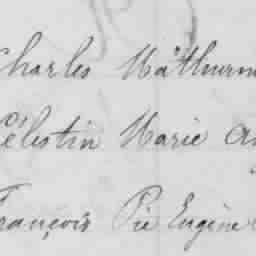 Charles Mathurin
Célestin Marie
François Pie Eugène